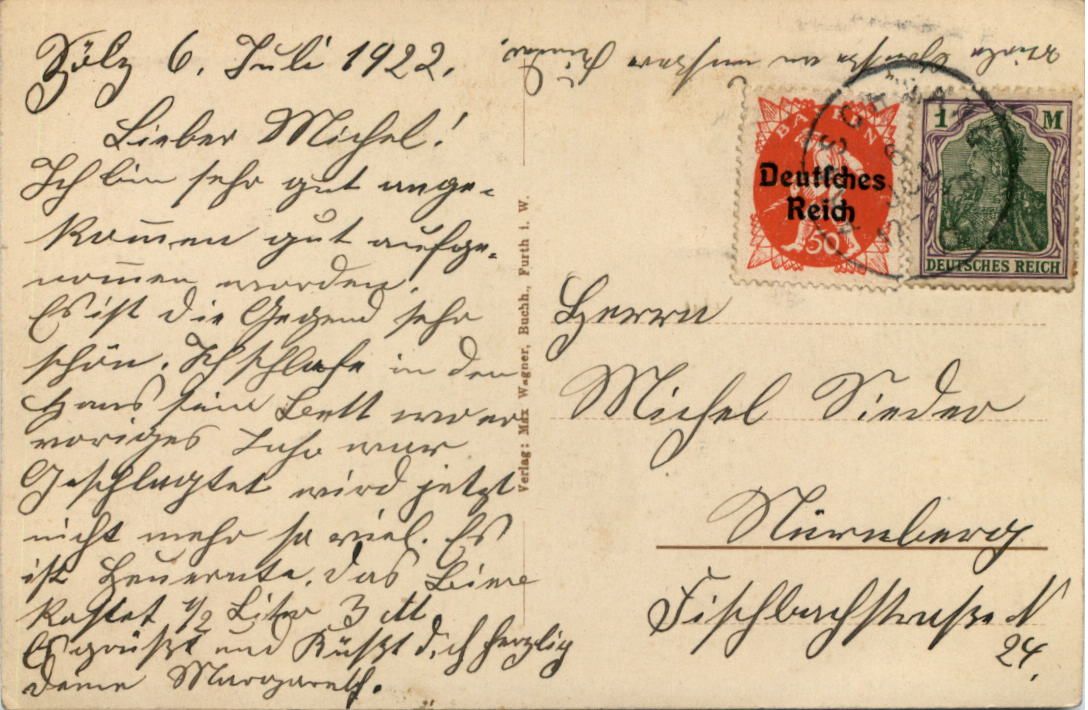 Zölz 6. Juli 1922.
Lieber Michel!
Ich bin sehr gut ange-
kom̄en gut aufge-
nom̄en worden.
Es ist die Gegend sehr
schön. Ich schlafe in den
Hans sein Bett wo er
voriges Jahr war
Geschlagtet wird jetzt
nicht mehr so viel. Es
ist Heuernte. Das Bier
kostet 1/2 Liter 3 M.
Es grüßt und Küßt dich herzlig
deine Margareth.
Viele Grüße an unsere Kinder.
Verlag: Max Wagner, Buchh., Furth i. W.
BAYERN
Deutsches
Reich
50
1 M
DEUTSCHES REICH
Herrn
Michel Sieder
Nürnberg
Fischbachstraße N
24.